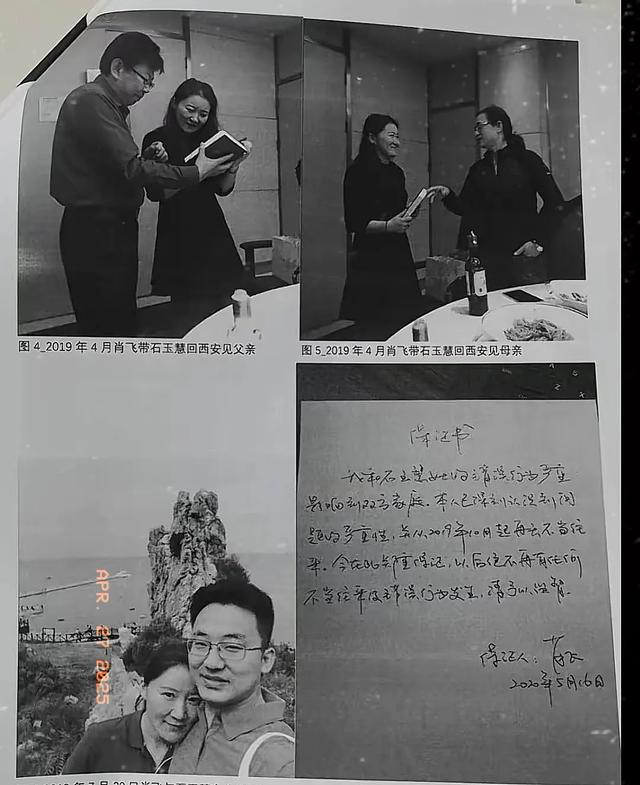 图 4_2019 年 4 月肖飞带石玉慧回西安见父亲
图 5_2019 年 4 月肖飞带石玉慧回西安见母亲
保证书
我和石玉慧的错误行为严重
影响到双方家庭。本人已深刻认识到问
题的严重性，并从2019年10月起再无不当往
来。今在此郑重保证，以后绝不再有任何
不当往来及错误行为发生，请予以监督。
保证人：肖飞
2020年5月16日
APR. 27 2025